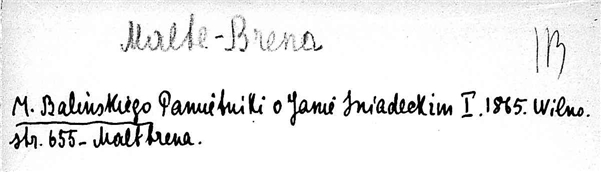 Malte-Brena
M. Balińskiego Pamiętniki o Janie Śniadeckim I. 1865. Wilno.
str. 655 - Maltbrena.